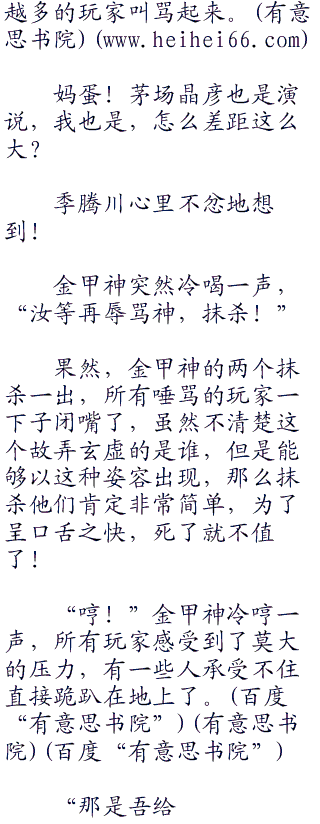 越多的玩家叫骂起来。(有意
思书院)(www.heihei66.com)
妈蛋！茅场晶彦也是演
说，我也是，怎么差距这么
大？
季腾川心里不忿地想
到！
金甲神突然冷喝一声，
“汝等再辱骂神，抹杀！”
果然，金甲神的两个抹
杀一出，所有唾骂的玩家一
下子闭嘴了，虽然不清楚这
个故弄玄虚的是谁，但是能
够以这种姿容出现，那么抹
杀他们肯定非常简单，为了
呈口舌之快，死了就不值
了！
“哼！”金甲神冷哼一
声，所有玩家感受到了莫大
的压力，有一些人承受不住
直接跪趴在地上了。(百度
“有意思书院”)(有意思书
院)(百度“有意思书院”)
“那是吾给